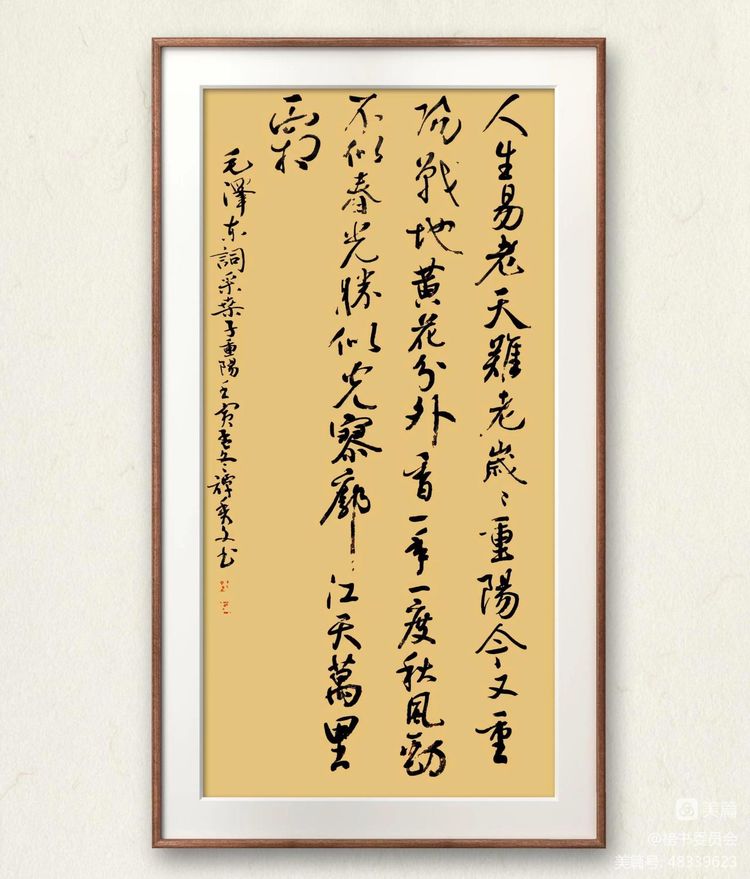 人生易老天難老歲〻重陽今又重
陽戰地黃花分外香一年一度秋風勁
不似春光勝似光寥廓江天萬里
霜
毛澤东詞采桑子重陽壬寅孟冬譚文书
美篇
@楷书委员会
美篇号: 48339623